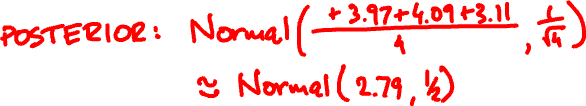 POSTERIOR: Normal( (+ 3.97+4.09+3.11)/4 , 1/√4 )
≃ Normal( 2.79, 1/2 )